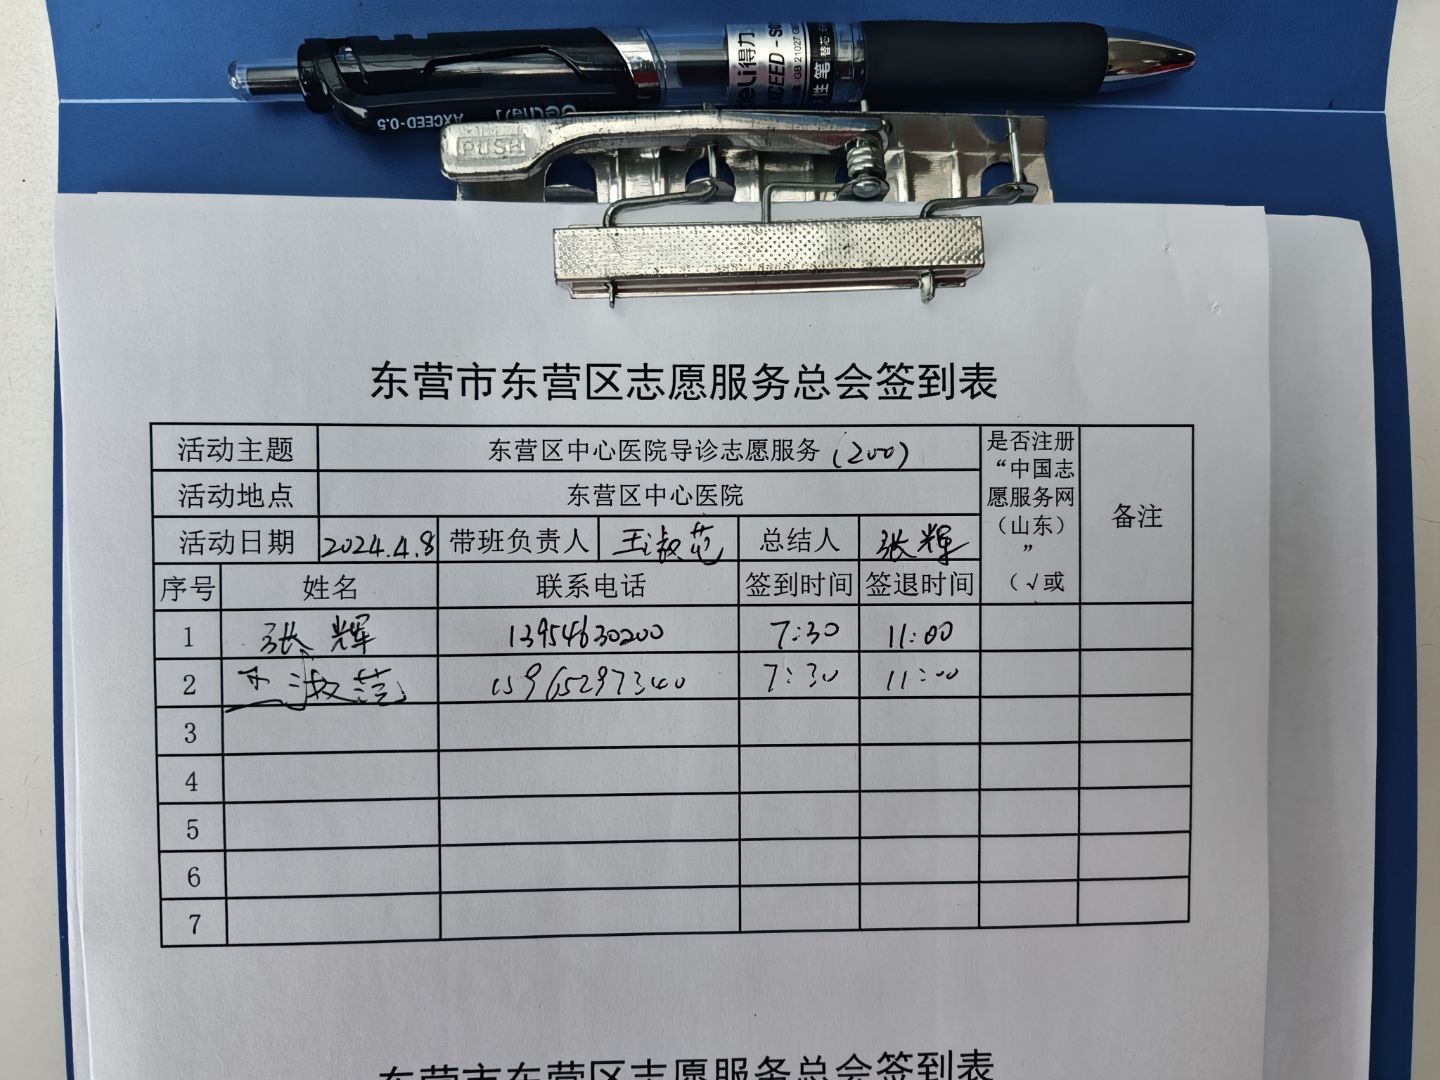 deli得力
AXCEED-0.5
PUSH
东营市东营区志愿服务总会签到表
活动主题 东营区中心医院导诊志愿服务(200)
活动地点 东营区中心医院
活动日期 2024.4.8 带班负责人 王淑范 总结人 张辉
是否注册
“中国志
愿服务网
（山东）
”
（√或
备注
序号 姓名 联系电话 签到时间 签退时间
1 张辉 13954630200 7:30 11:00
2 王淑范 15965297340 7:30 11:00
3
4
5
6
7
东营市东营区志愿服务总会签到表